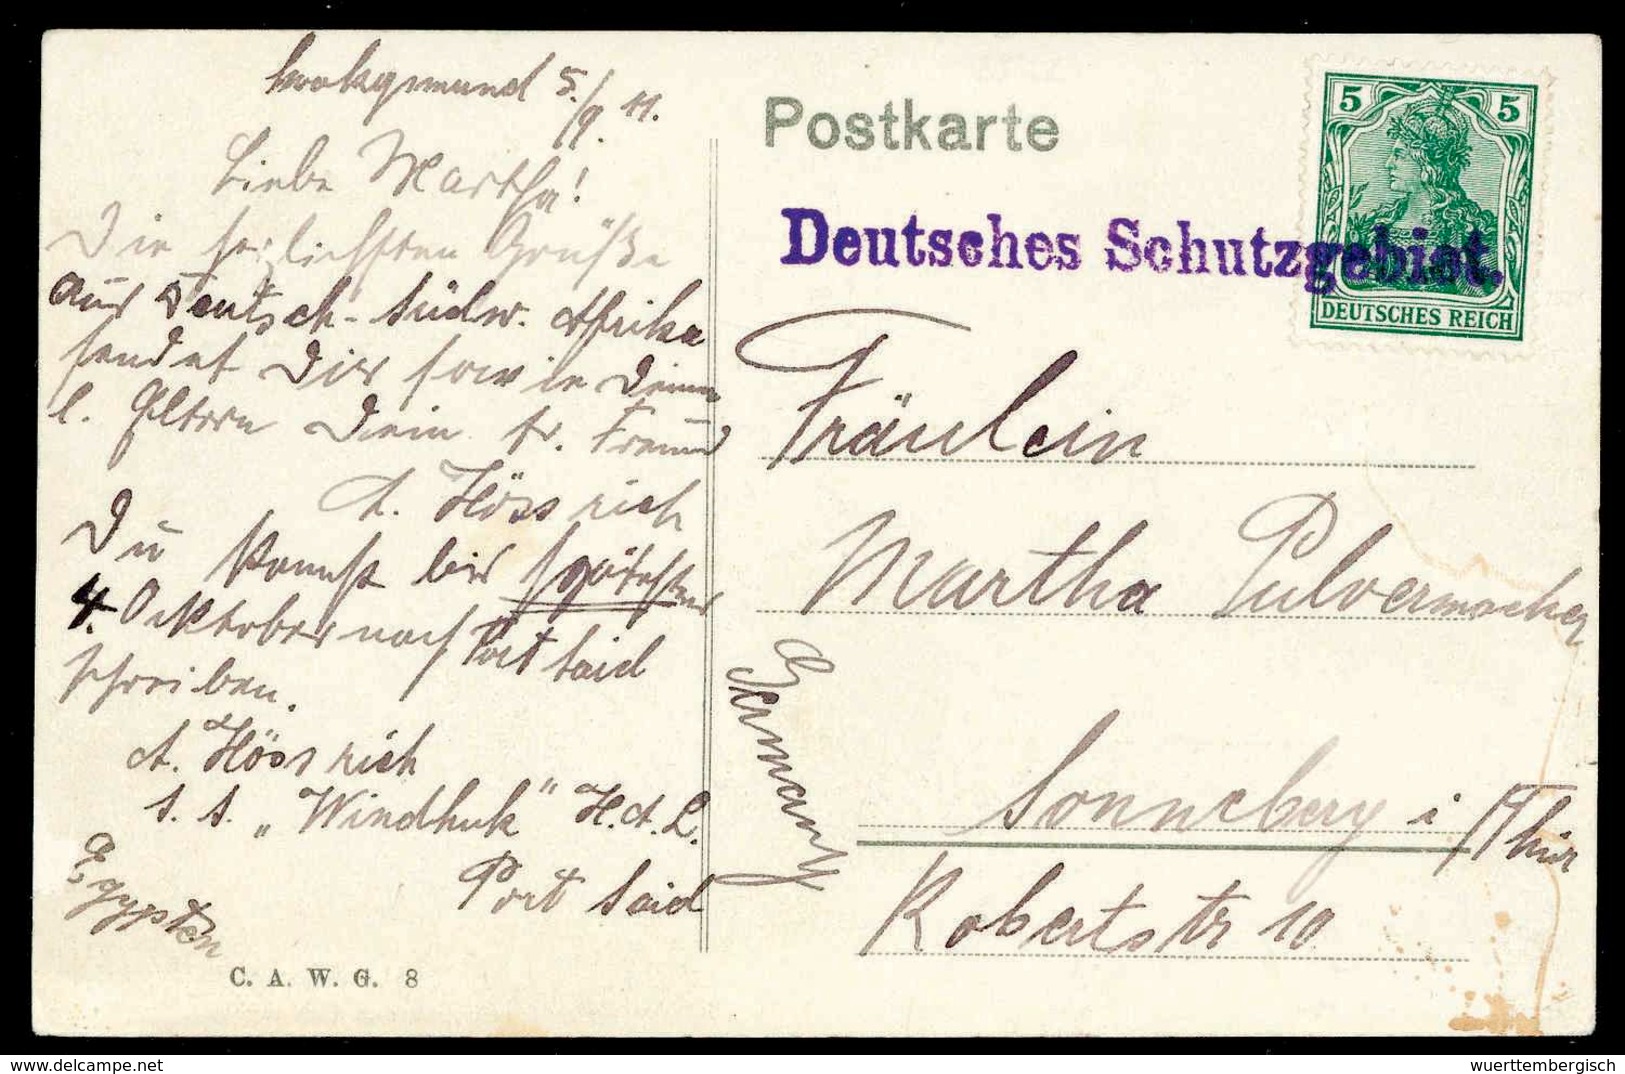 Swakopmund 5./9. 11.
Liebe Martha!
Die herzlichsten Grüße
aus Deutsch-Südw. Afrika
sendet Dir sowie Deinen
l. Eltern Dein tr. Freund
A. Hössrich
Du kannst bis spätestens
4. Ocktober nach Port Said
schreiben.
A. Hössrich
S. S. „Windhuk" H.A.L.
Port Said
Egypten
C. A. W. G. 8
Postkarte
5 5
DEUTSCHES REICH
Deutsches Schutzgebiet.
Fräulein
Martha Pulvermacher
Germany
Sonneberg i/Thür
Robertstr 10
delcampe.net
wuerttembergisch